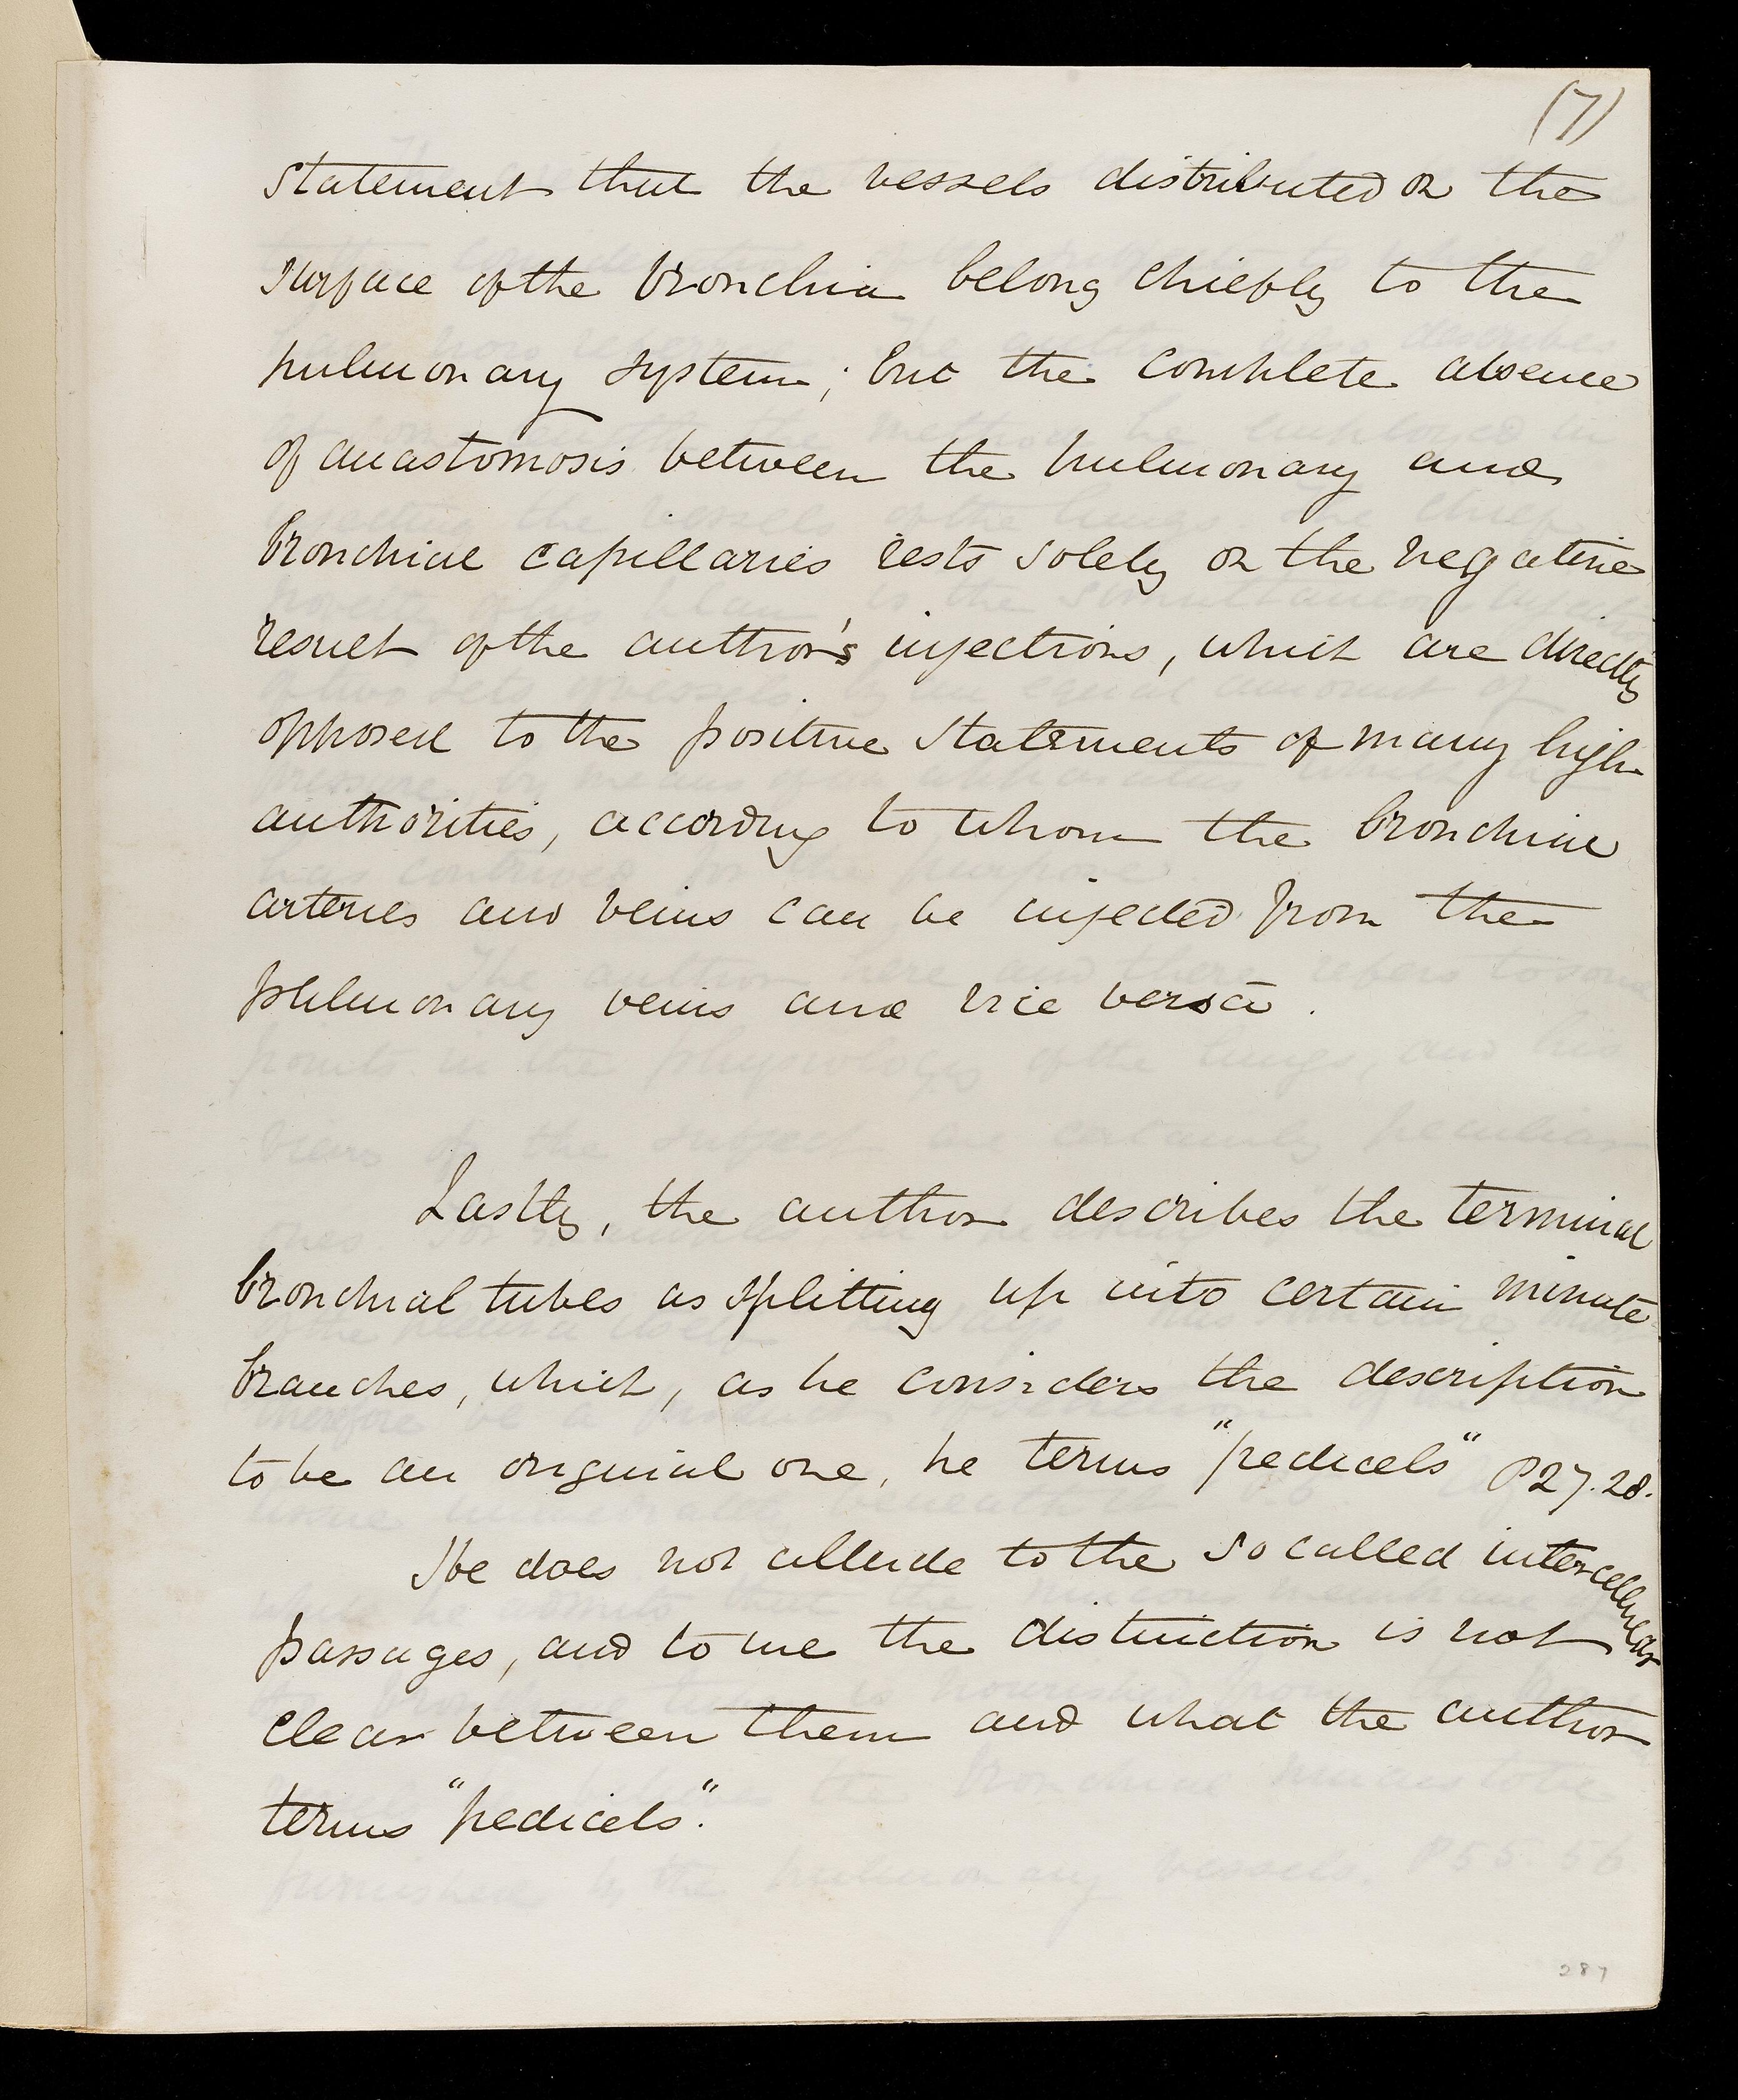 (7)
statement that the vessels distributed on the
surface of the bronchia belong chiefly to the
pulmonary system; but the complete absence
of anastomosis between the pulmonary and
bronchial capillaries rests solely on the negative
result of the author's injections, which are directly
opposed to the positive statements of many high
authorities, according to whom the bronchial
arteries and veins can be injected from the
pulmonary veins and vice versâ.
Lastly, the author describes the terminal
bronchial tubes as splitting up into certain minute
branches, which, as he considers the description
to be an original one, he terms "pedicels" P27.28.
He does not allude to the so called intercellular
passages, and to me the distinction is not
clear between them and what the author
terms "pedicels".
287